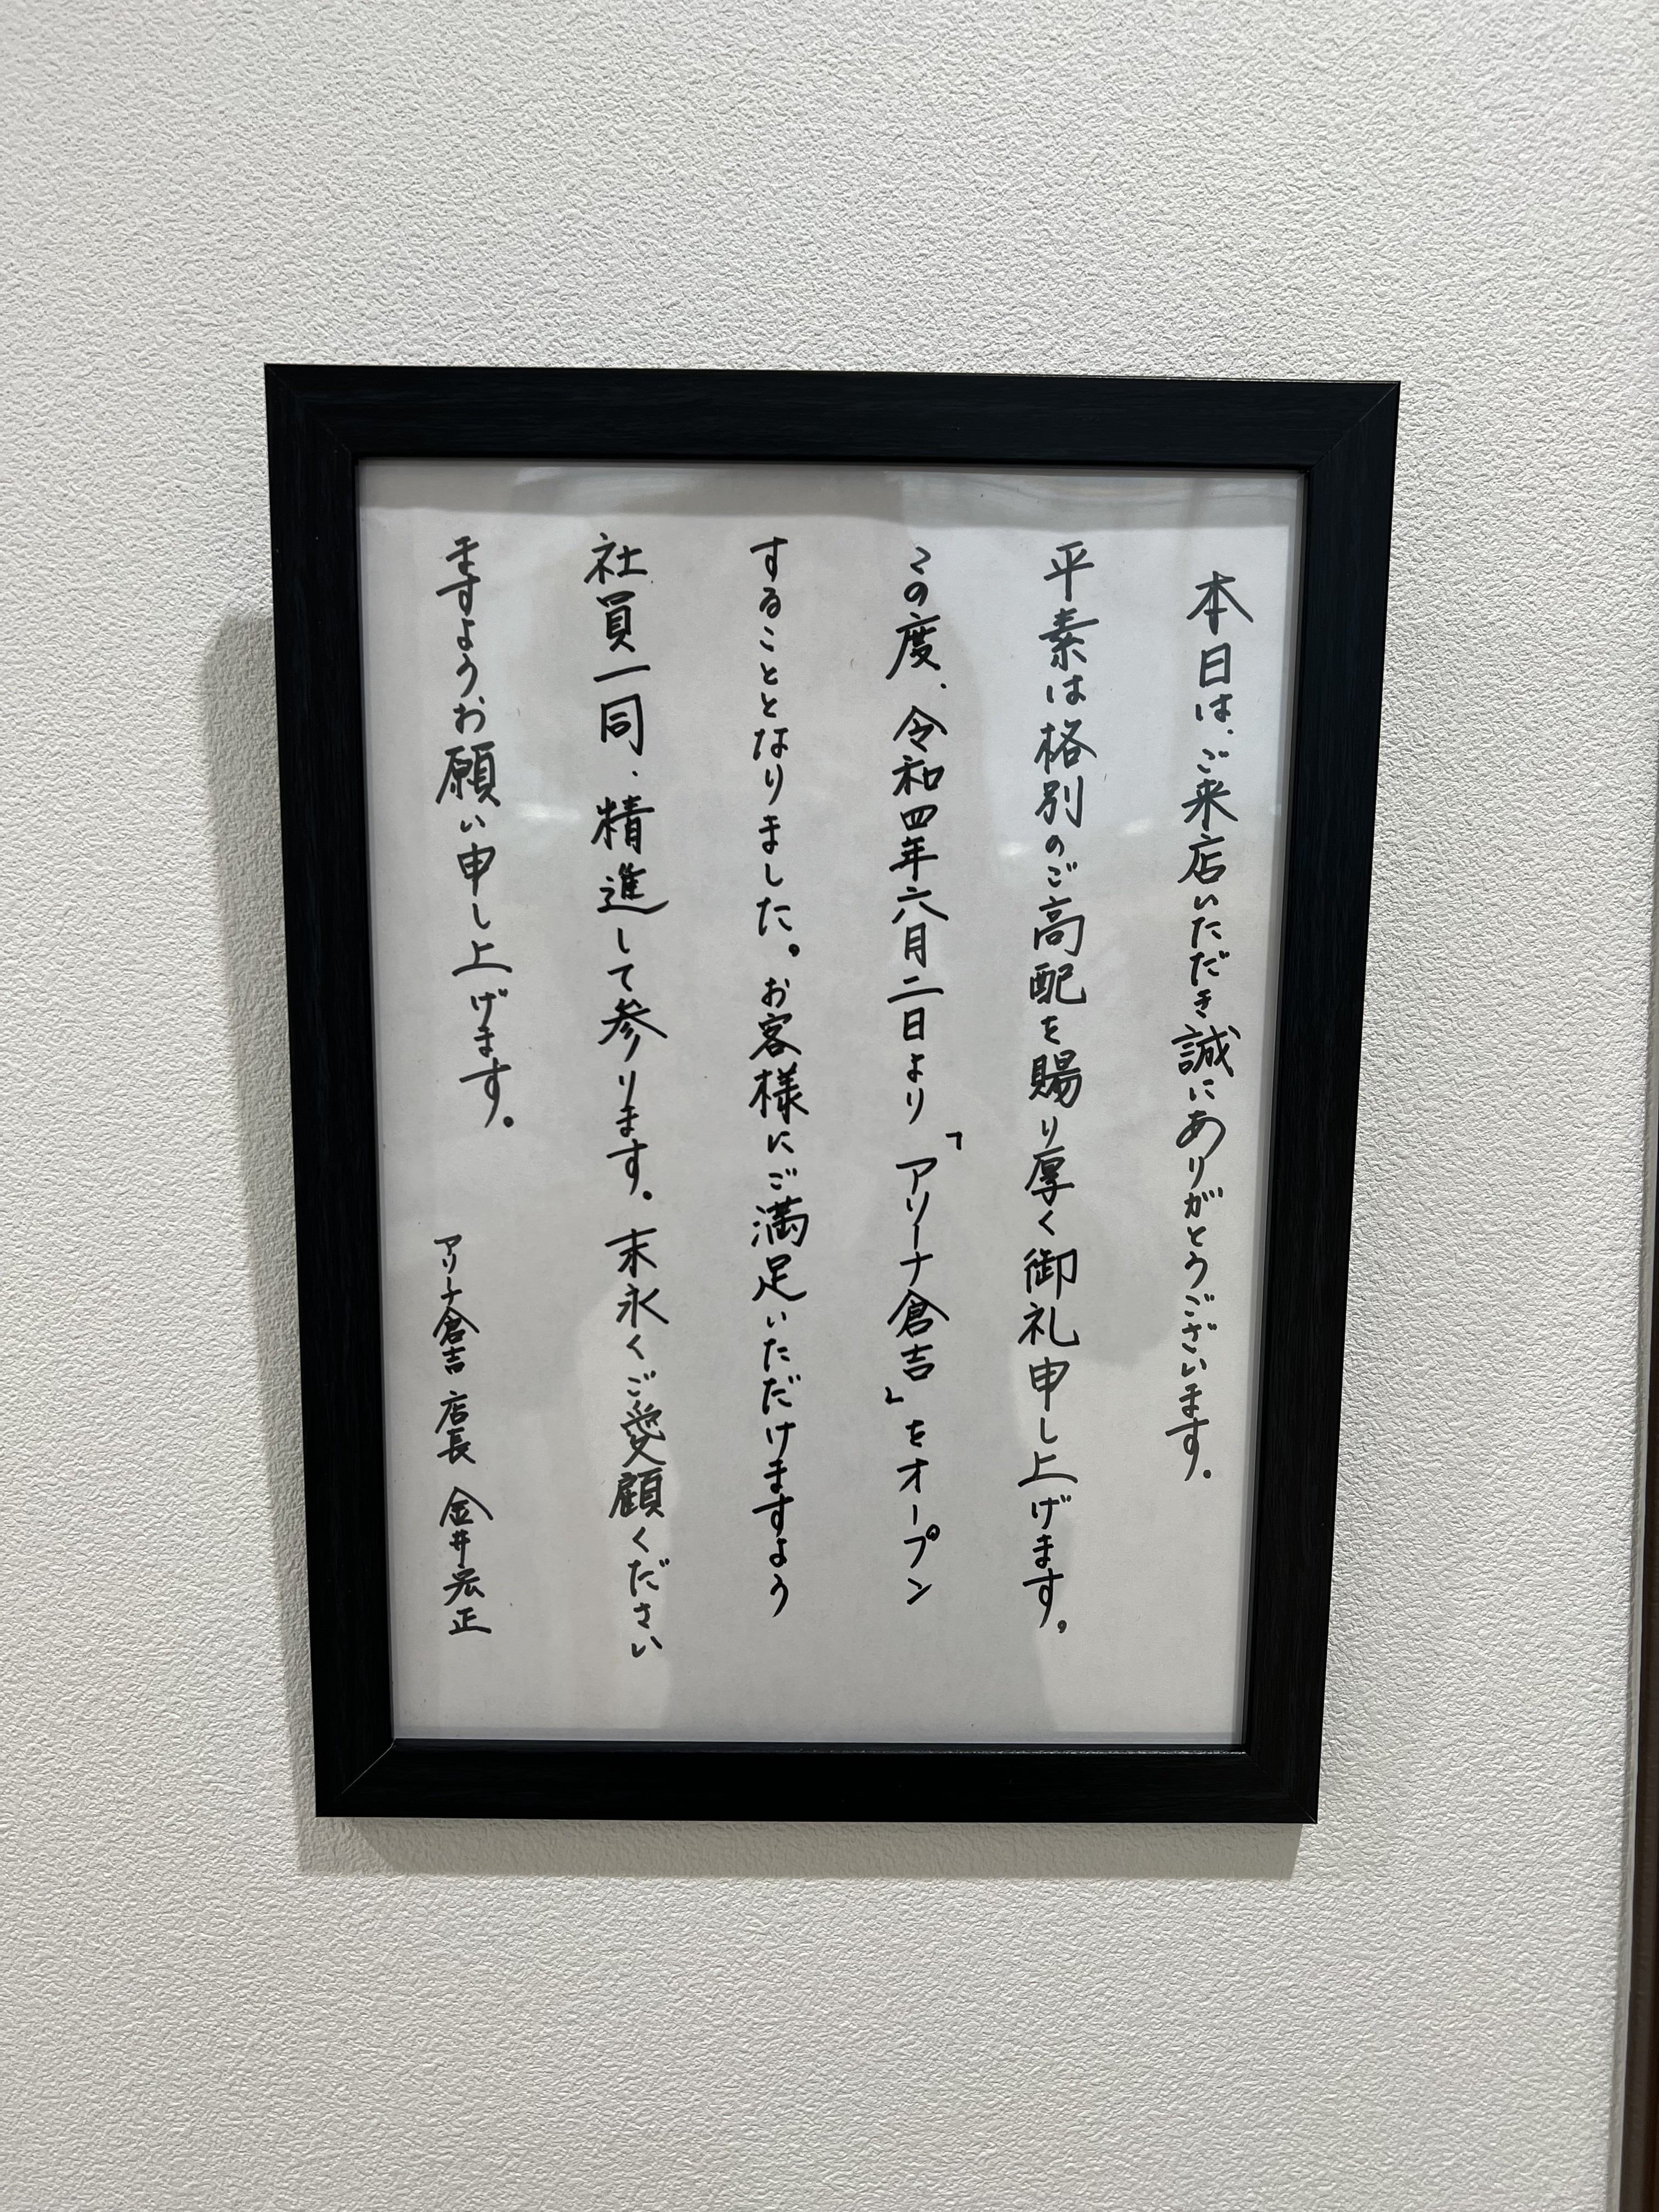 本日は、ご来店いただき誠にありがとうございます。
平素は格別のご高配を賜り厚く御礼申し上げます。
この度、令和四年六月二日より「アリーナ倉吉」をオープン
することとなりました。お客様にご満足いただけますよう
社員一同、精進して参ります。末永くご愛顧ください
ますようお願い申し上げます。
アリーナ倉吉 店長 金井宏正